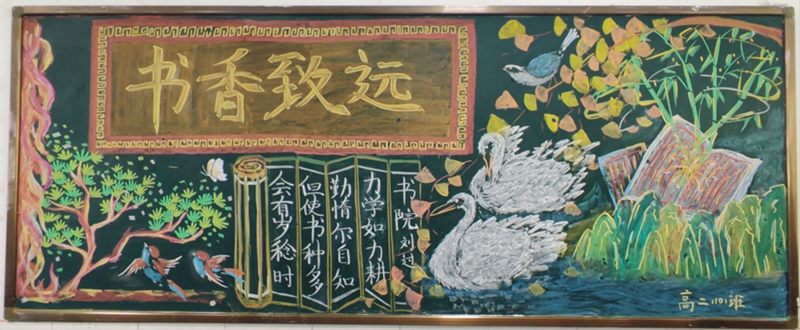 书香致远
书院 刘过
力学如力耕
勤惰尔自知
但使书种多
会有岁稔时
高二(10)班